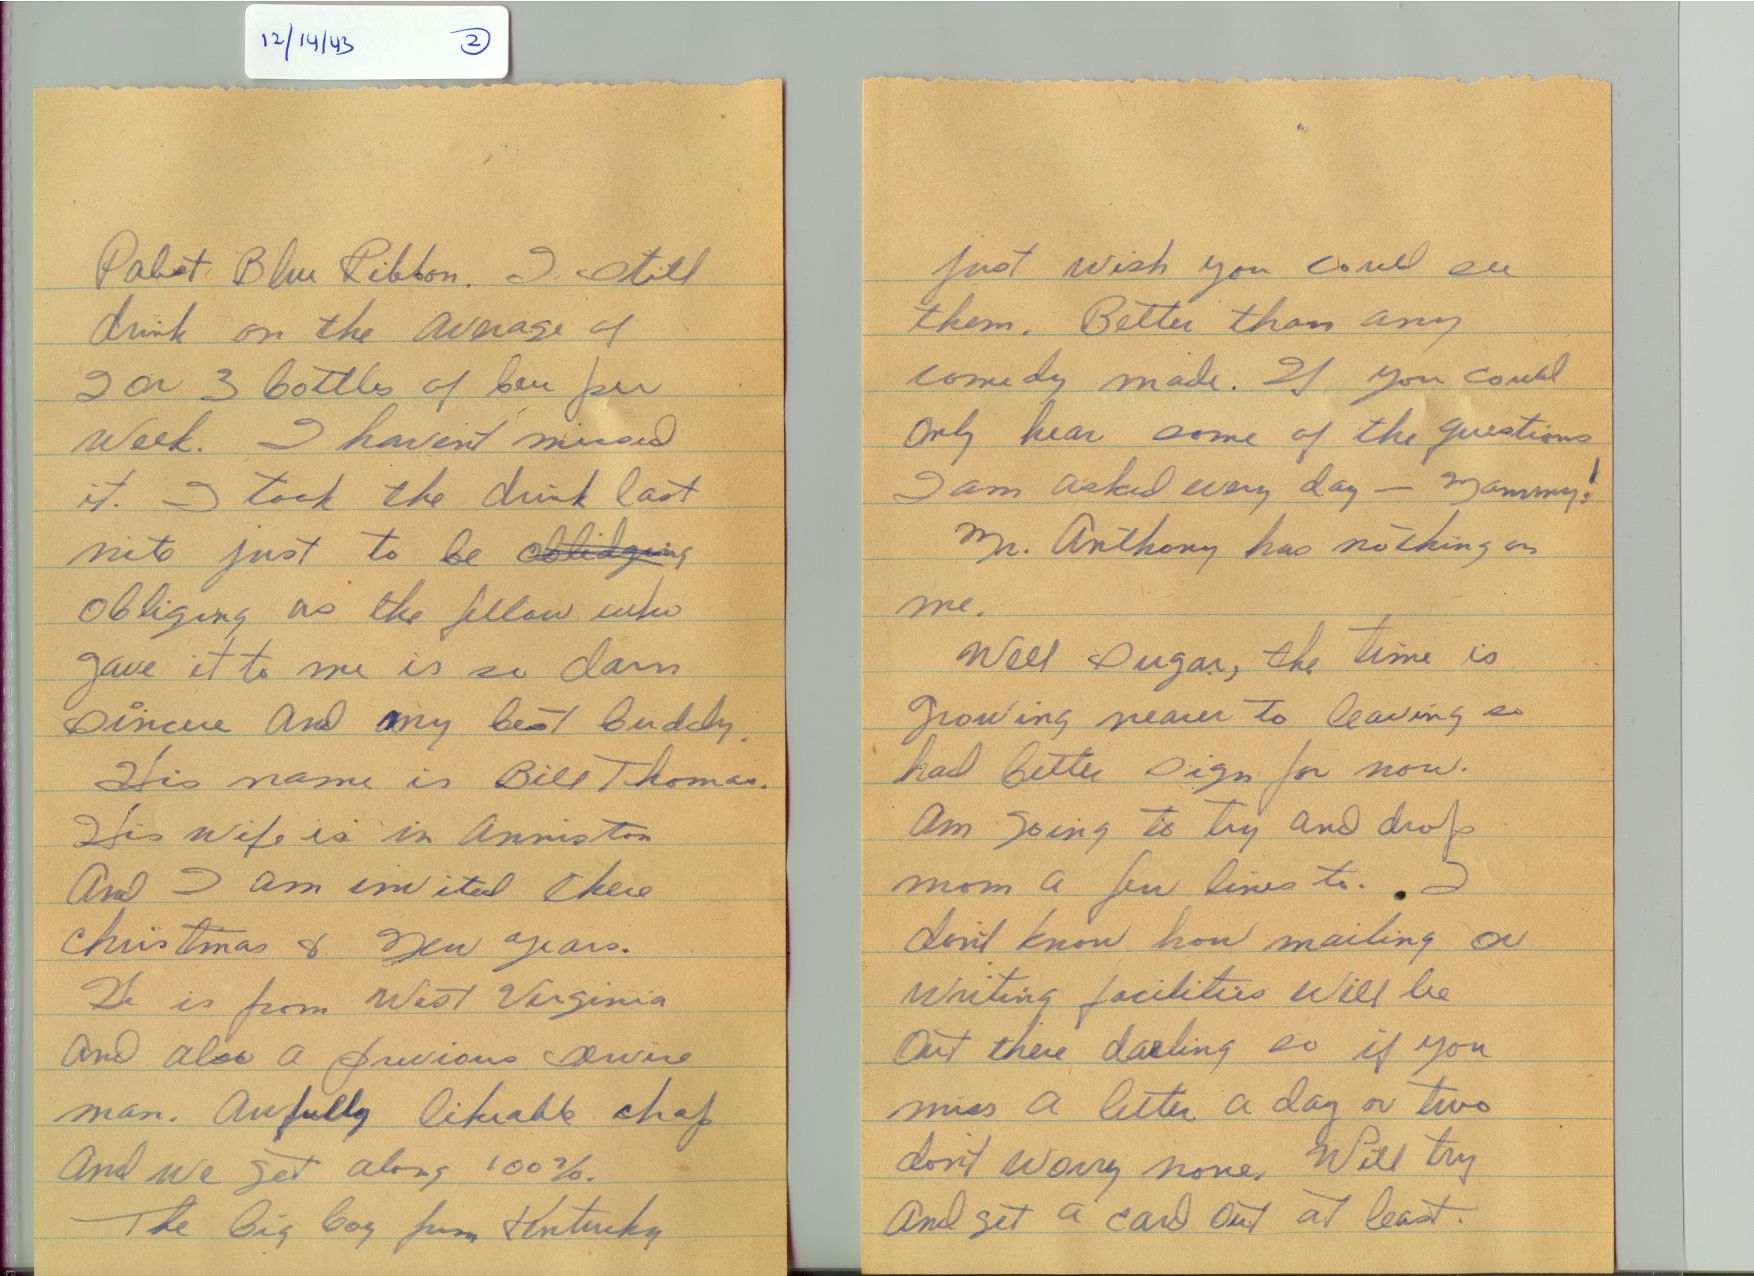 12/14/43 2
Pabst Blue Ribbon. I still
drink on the average of
2 or 3 bottles of beer per
week. I haven't missed
it. I took the drink last
nite just to be oblidging
obliging as the fellow who
gave it to me is so darn
sincere and my best buddy.
His name is Bill Thomas.
His wife is in Anniston
And I am invited there
christmas & New years.
He is from West Virginia
And also a previous service
man. Awfully likeable chap
And we get along 100%.
The big boy from Kentucky
just wish you could see
them. Better than any
comedy made. If you could
only hear some of the questions
I am asked every day — Mammy!
Mr. Anthony has nothing on
me.
Well Sugar, the time is
growing nearer to leaving so
had better sign for now.
Am going to try and drop
mom a few lines to. I
don't know how mailing or
writing facilities will be
out there darling so if you
miss a letter a day or two
don't worry none. Will try
And get a card out at least.